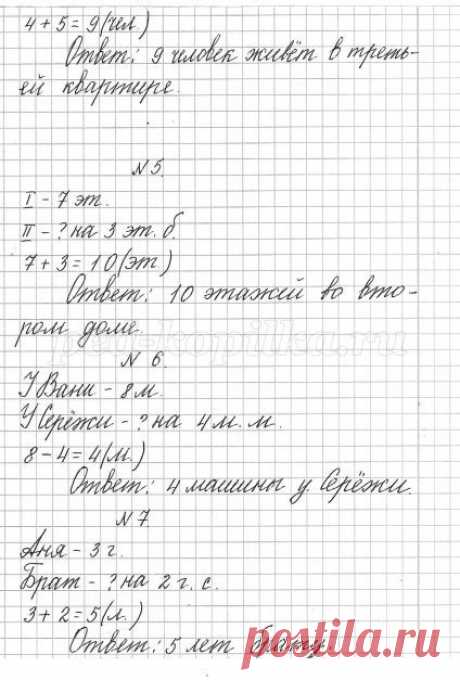 4 + 5 = 9 (чел.)
Ответ: 9 человек живёт в треть-
ей квартире.
N 5.
I - 7 эт.
II - ? на 3 эт. б.
7 + 3 = 10 (эт.)
Ответ: 10 этажей во вто-
ром доме.
N 6.
У Вани - 8 м.
У Серёжи - ? на 4 м. м.
8 - 4 = 4 (м.)
Ответ: 4 машины у Серёжи.
N 7
Аня - 3 г.
Брат - ? на 2 г. с.
3 + 2 = 5 (л.)
Ответ: 5 лет брату.
postila.ru